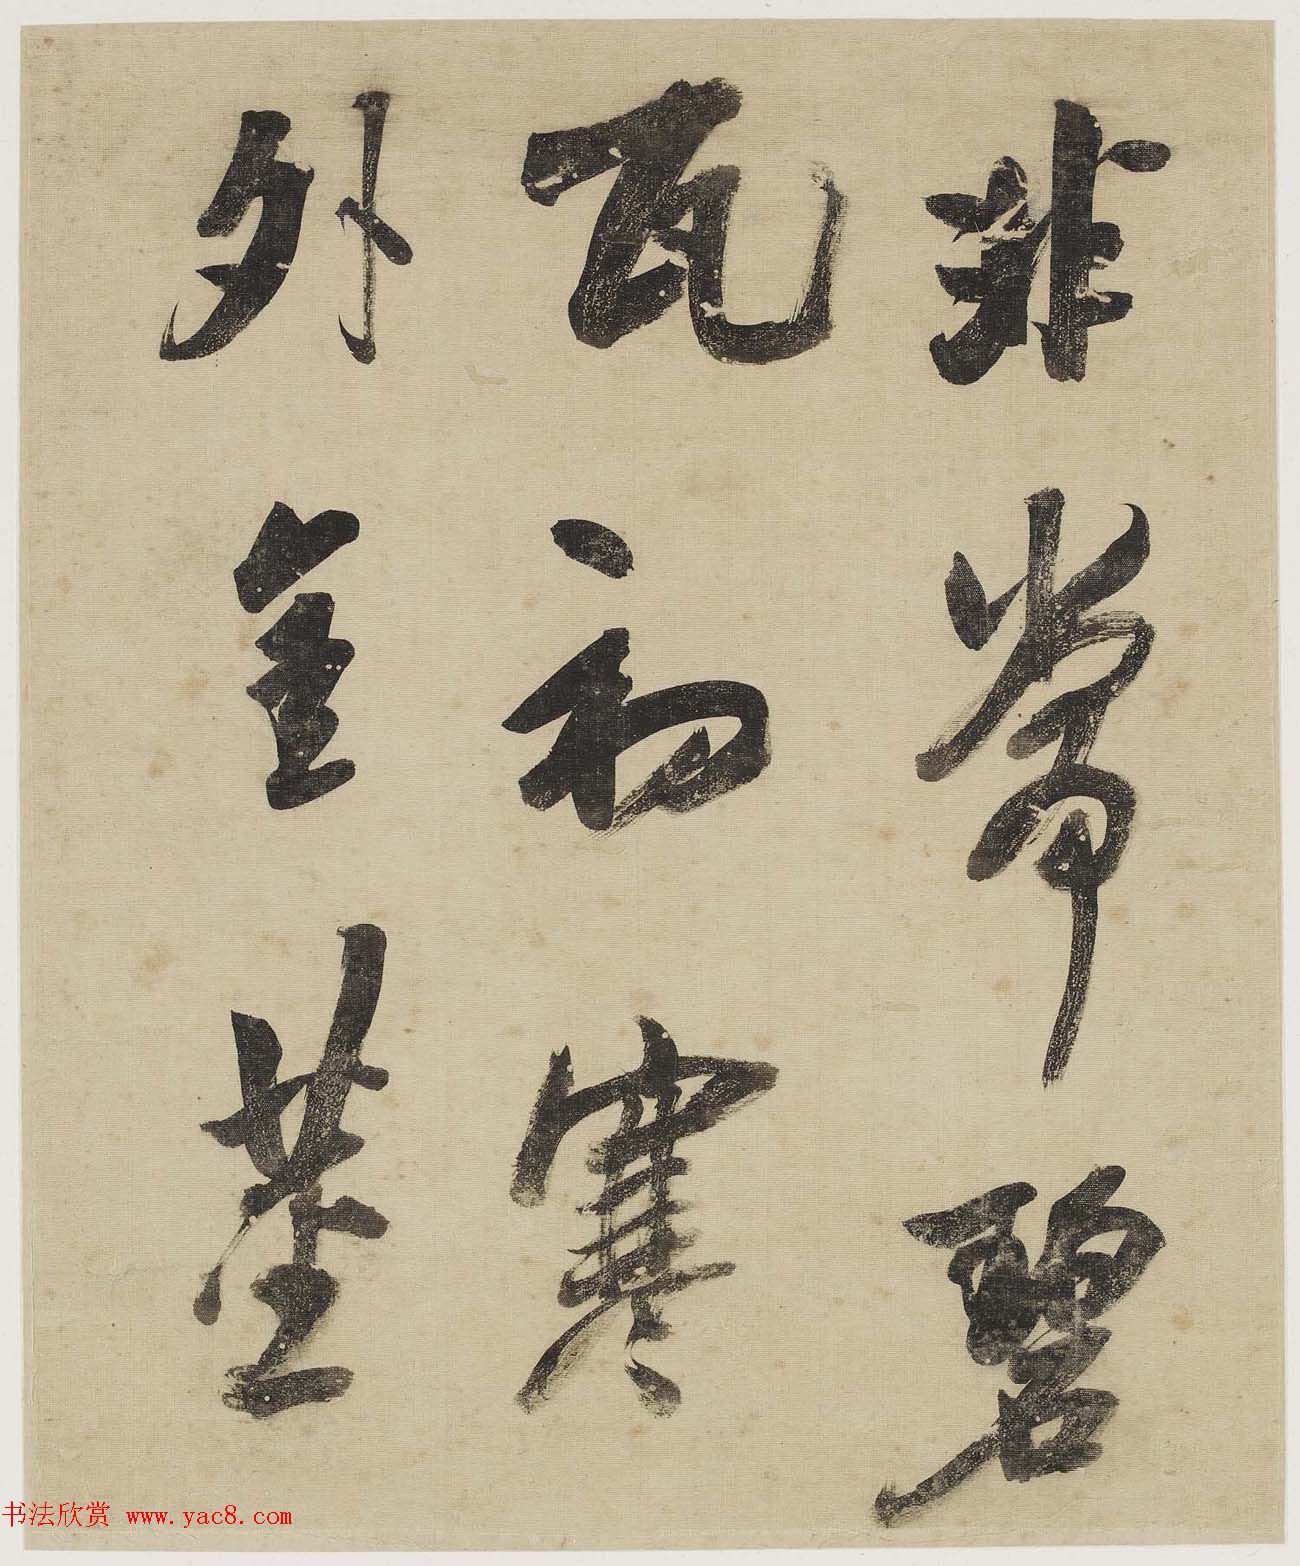 非常碧
瓦初寒
外金莖
书法欣赏 www.yac8.com